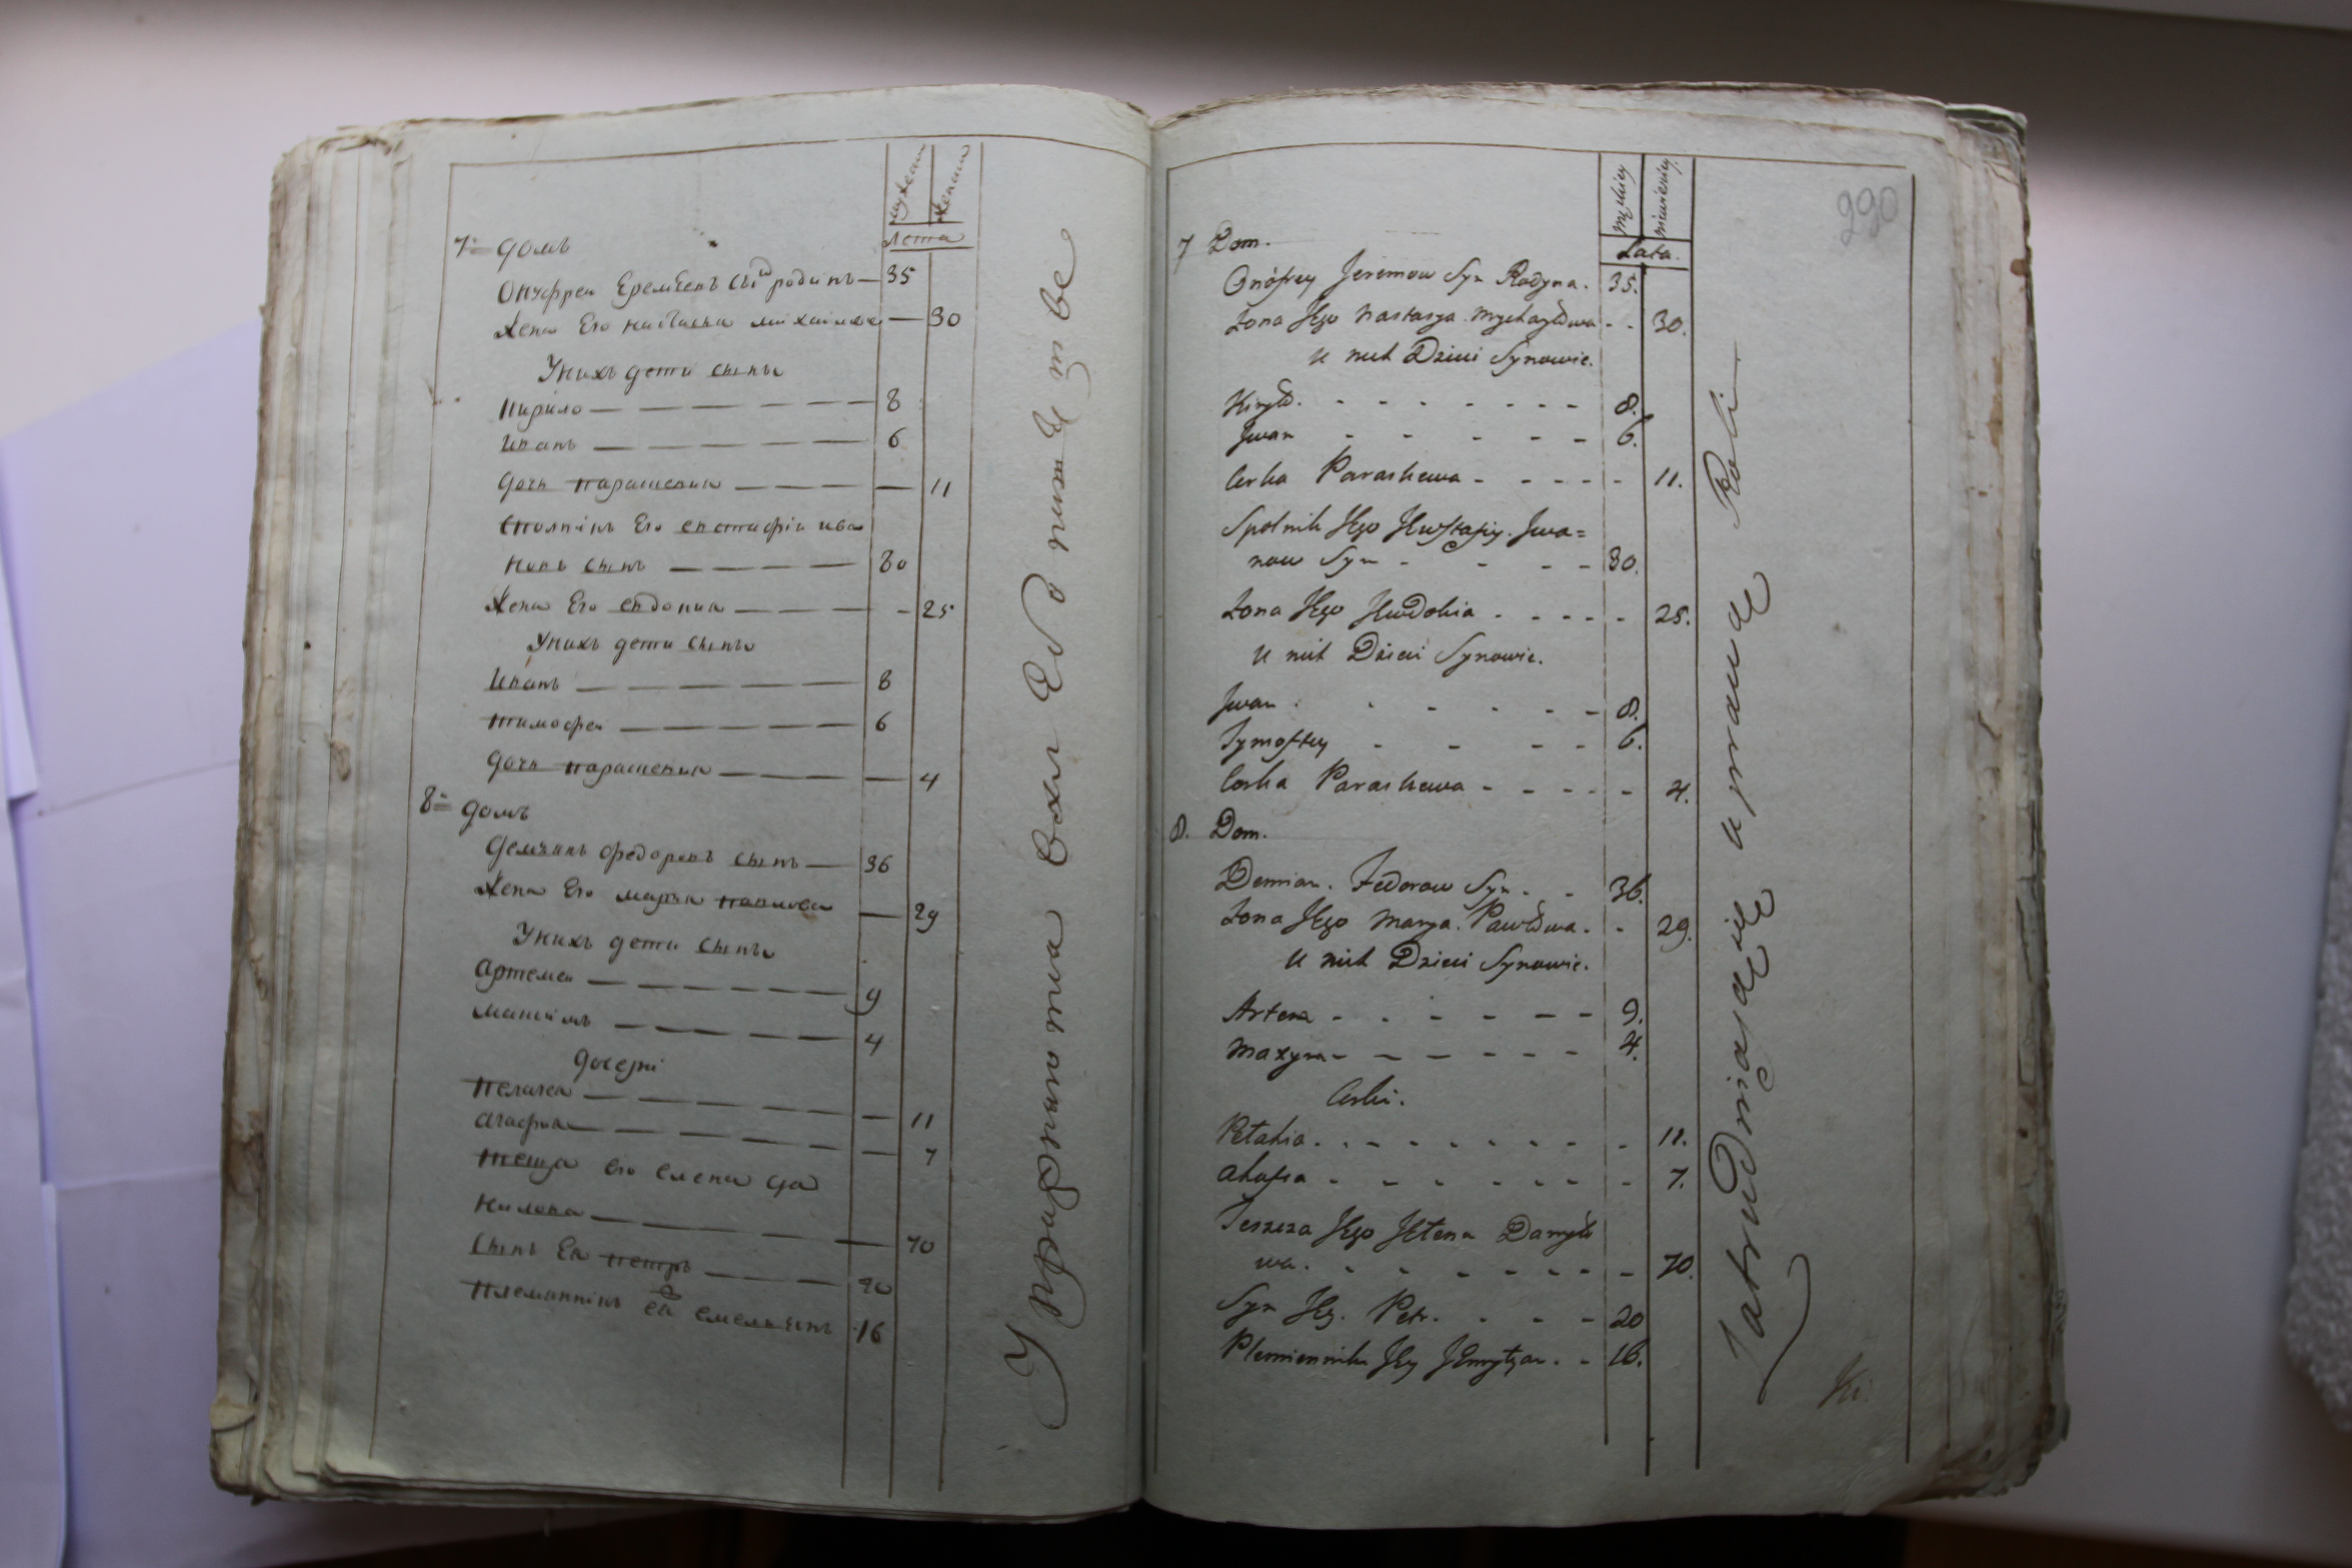 мужеска
женска
лета
7й домъ
Онуфреи Еремеевъ сынъ родинъ — 35
жена Его настасья михаилова — 30
Унихъ дети сыны
кирило — 8
иванъ — 6
дочь парасковия — 11
сполникъ Его евстафiи ива
новъ сынъ — 30
жена Его евдокия — 25
Унихъ дети сыны
иванъ — 8
тимофеи — 6
дочь парасковия — 4
8й домъ
демянъ федоровъ сынъ — 36
жена Его марья павлова — 29
Унихъ дети сыны
артемеи — 9
максiмъ — 4
дочери
пелагея — 11
агафия — 7
теща его елена да
нилова — 70
сынъ Ея петръ — 20
племянникъ ея емельянъ 16
Упражняются всяк Ево питомстве
290
męskiey
niewieściey
Lata.
7 Dom.
Onófrey Jeremow Syn Rodyna. 35.
Zona Jego Nastasya Mychayłowa - - 30.
U nich Dzieci Synowie.
Kiryło. - - - 8.
Jwan - - - 6.
Corka Paraskewa - - - 11.
Spolnik Jego Jewstafiy. Jwa=
now Syn - - - 30.
Zona Jego Jewdokia - - - 25.
U nich Dzieci Synowie.
Jwan - - - 8.
Tymoftey - - - 6.
Corka Paraskewa - - - 4.
8. Dom.
Demian. Fedorow Syn - - 36.
Zona Jego Marya. Pawłowa. - 29.
U nich Dzieci Synowie.
Artem - - - 9.
Maxym - - - 4.
Corki.
Pełahia - - - 11.
Ahafia - - - 7.
Teszcza Jego Jełena Daniło
wa. - - - 70.
Syn Jey. Petr. - - - 20
Plemiennik Jey Jemylyan. - 16.
Zatrudniaią się uprawą Roli